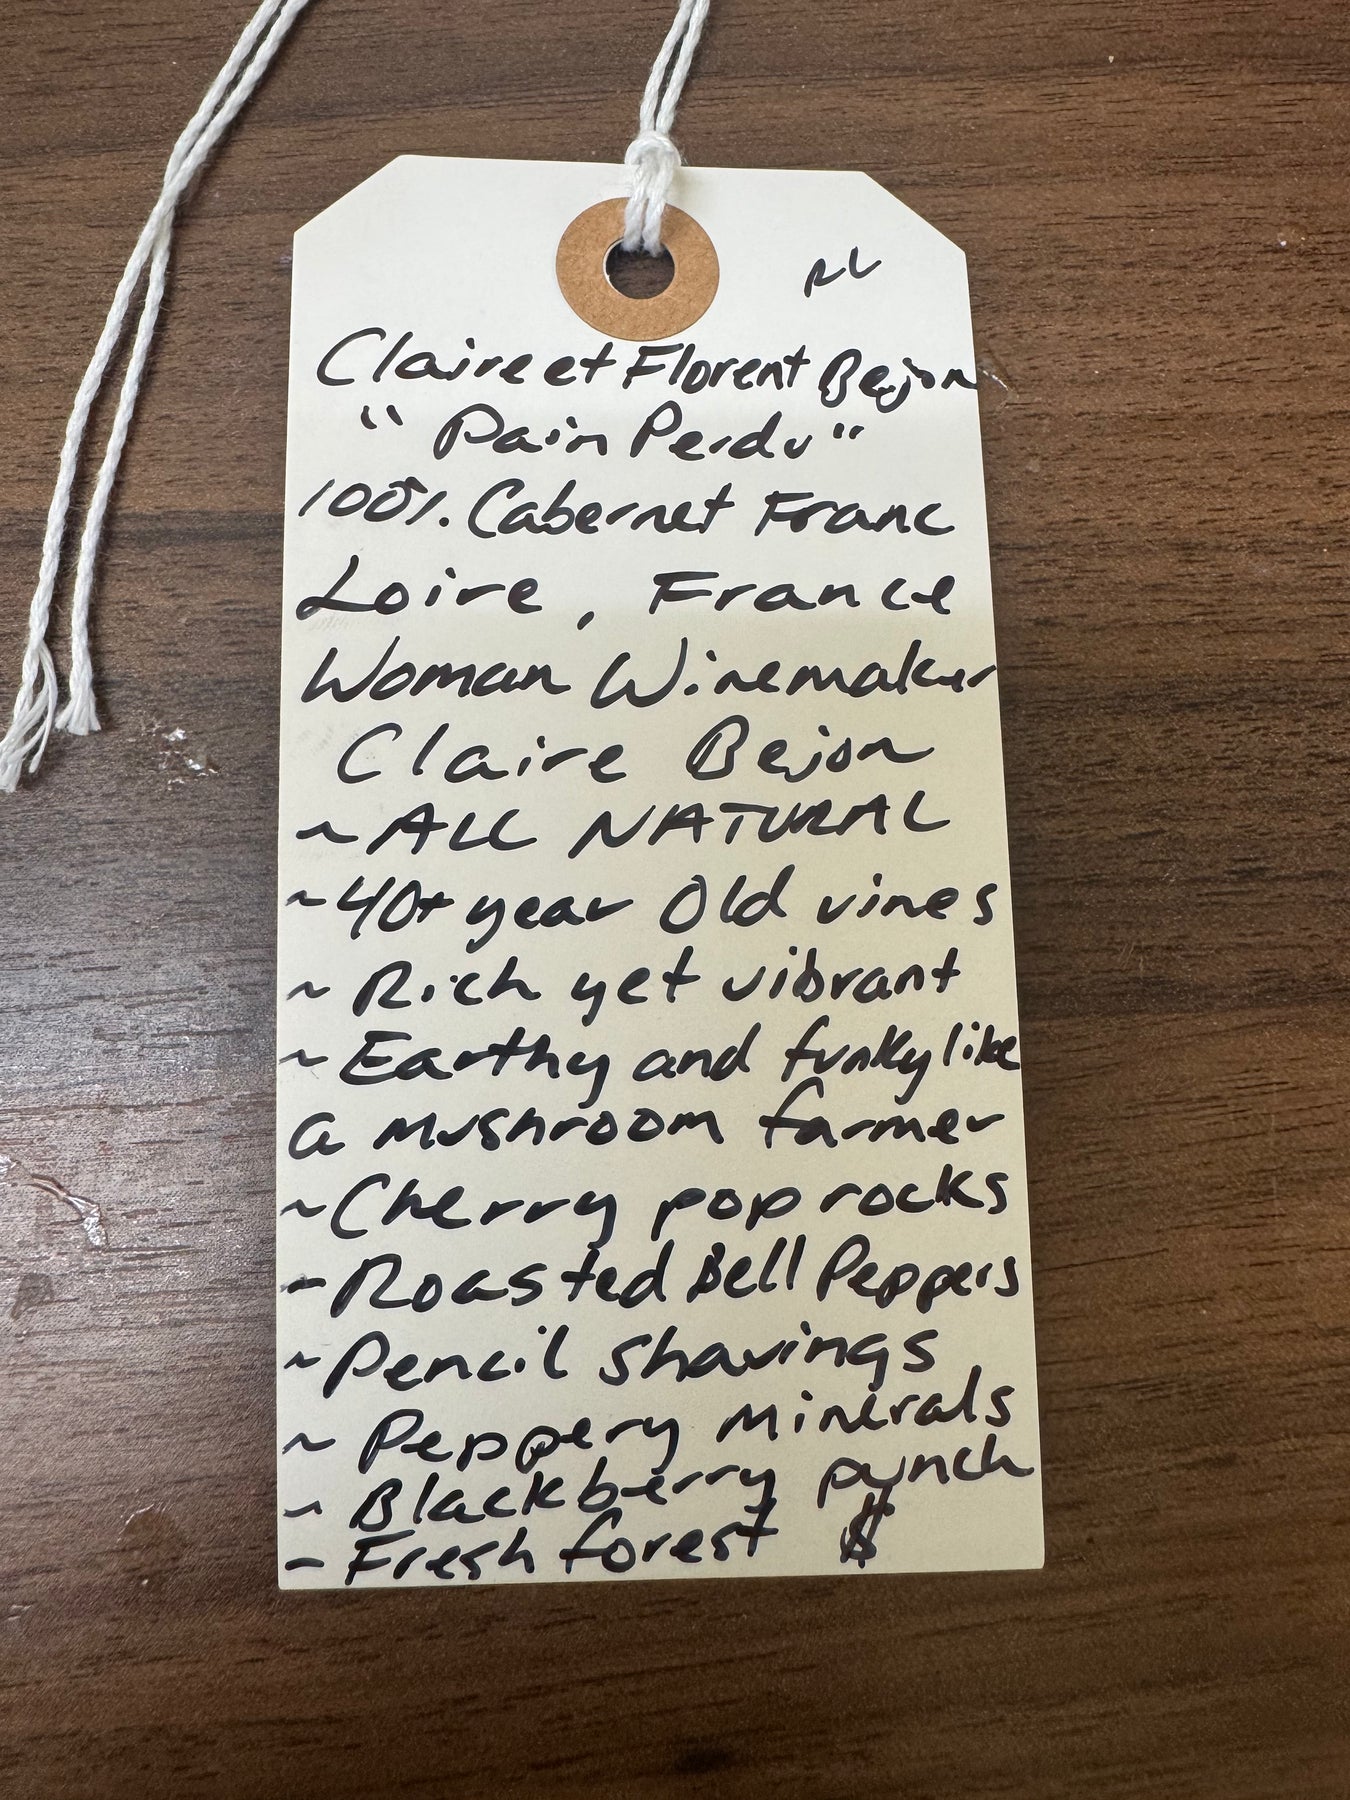 Claire et Florent Bejon
"Pain Perdu"
100%. Cabernet Franc
Loire, France
Woman Winemaker
Claire Bejon
~ALL NATURAL
~40+ year Old vines
~ Rich yet vibrant
~ Earthy and funky like
a mushroom farmer
~Cherry pop rocks
~Roasted Bell Peppers
~Pencil shavings
~ Peppery minerals
~ Blackberry punch
~ Fresh forest $